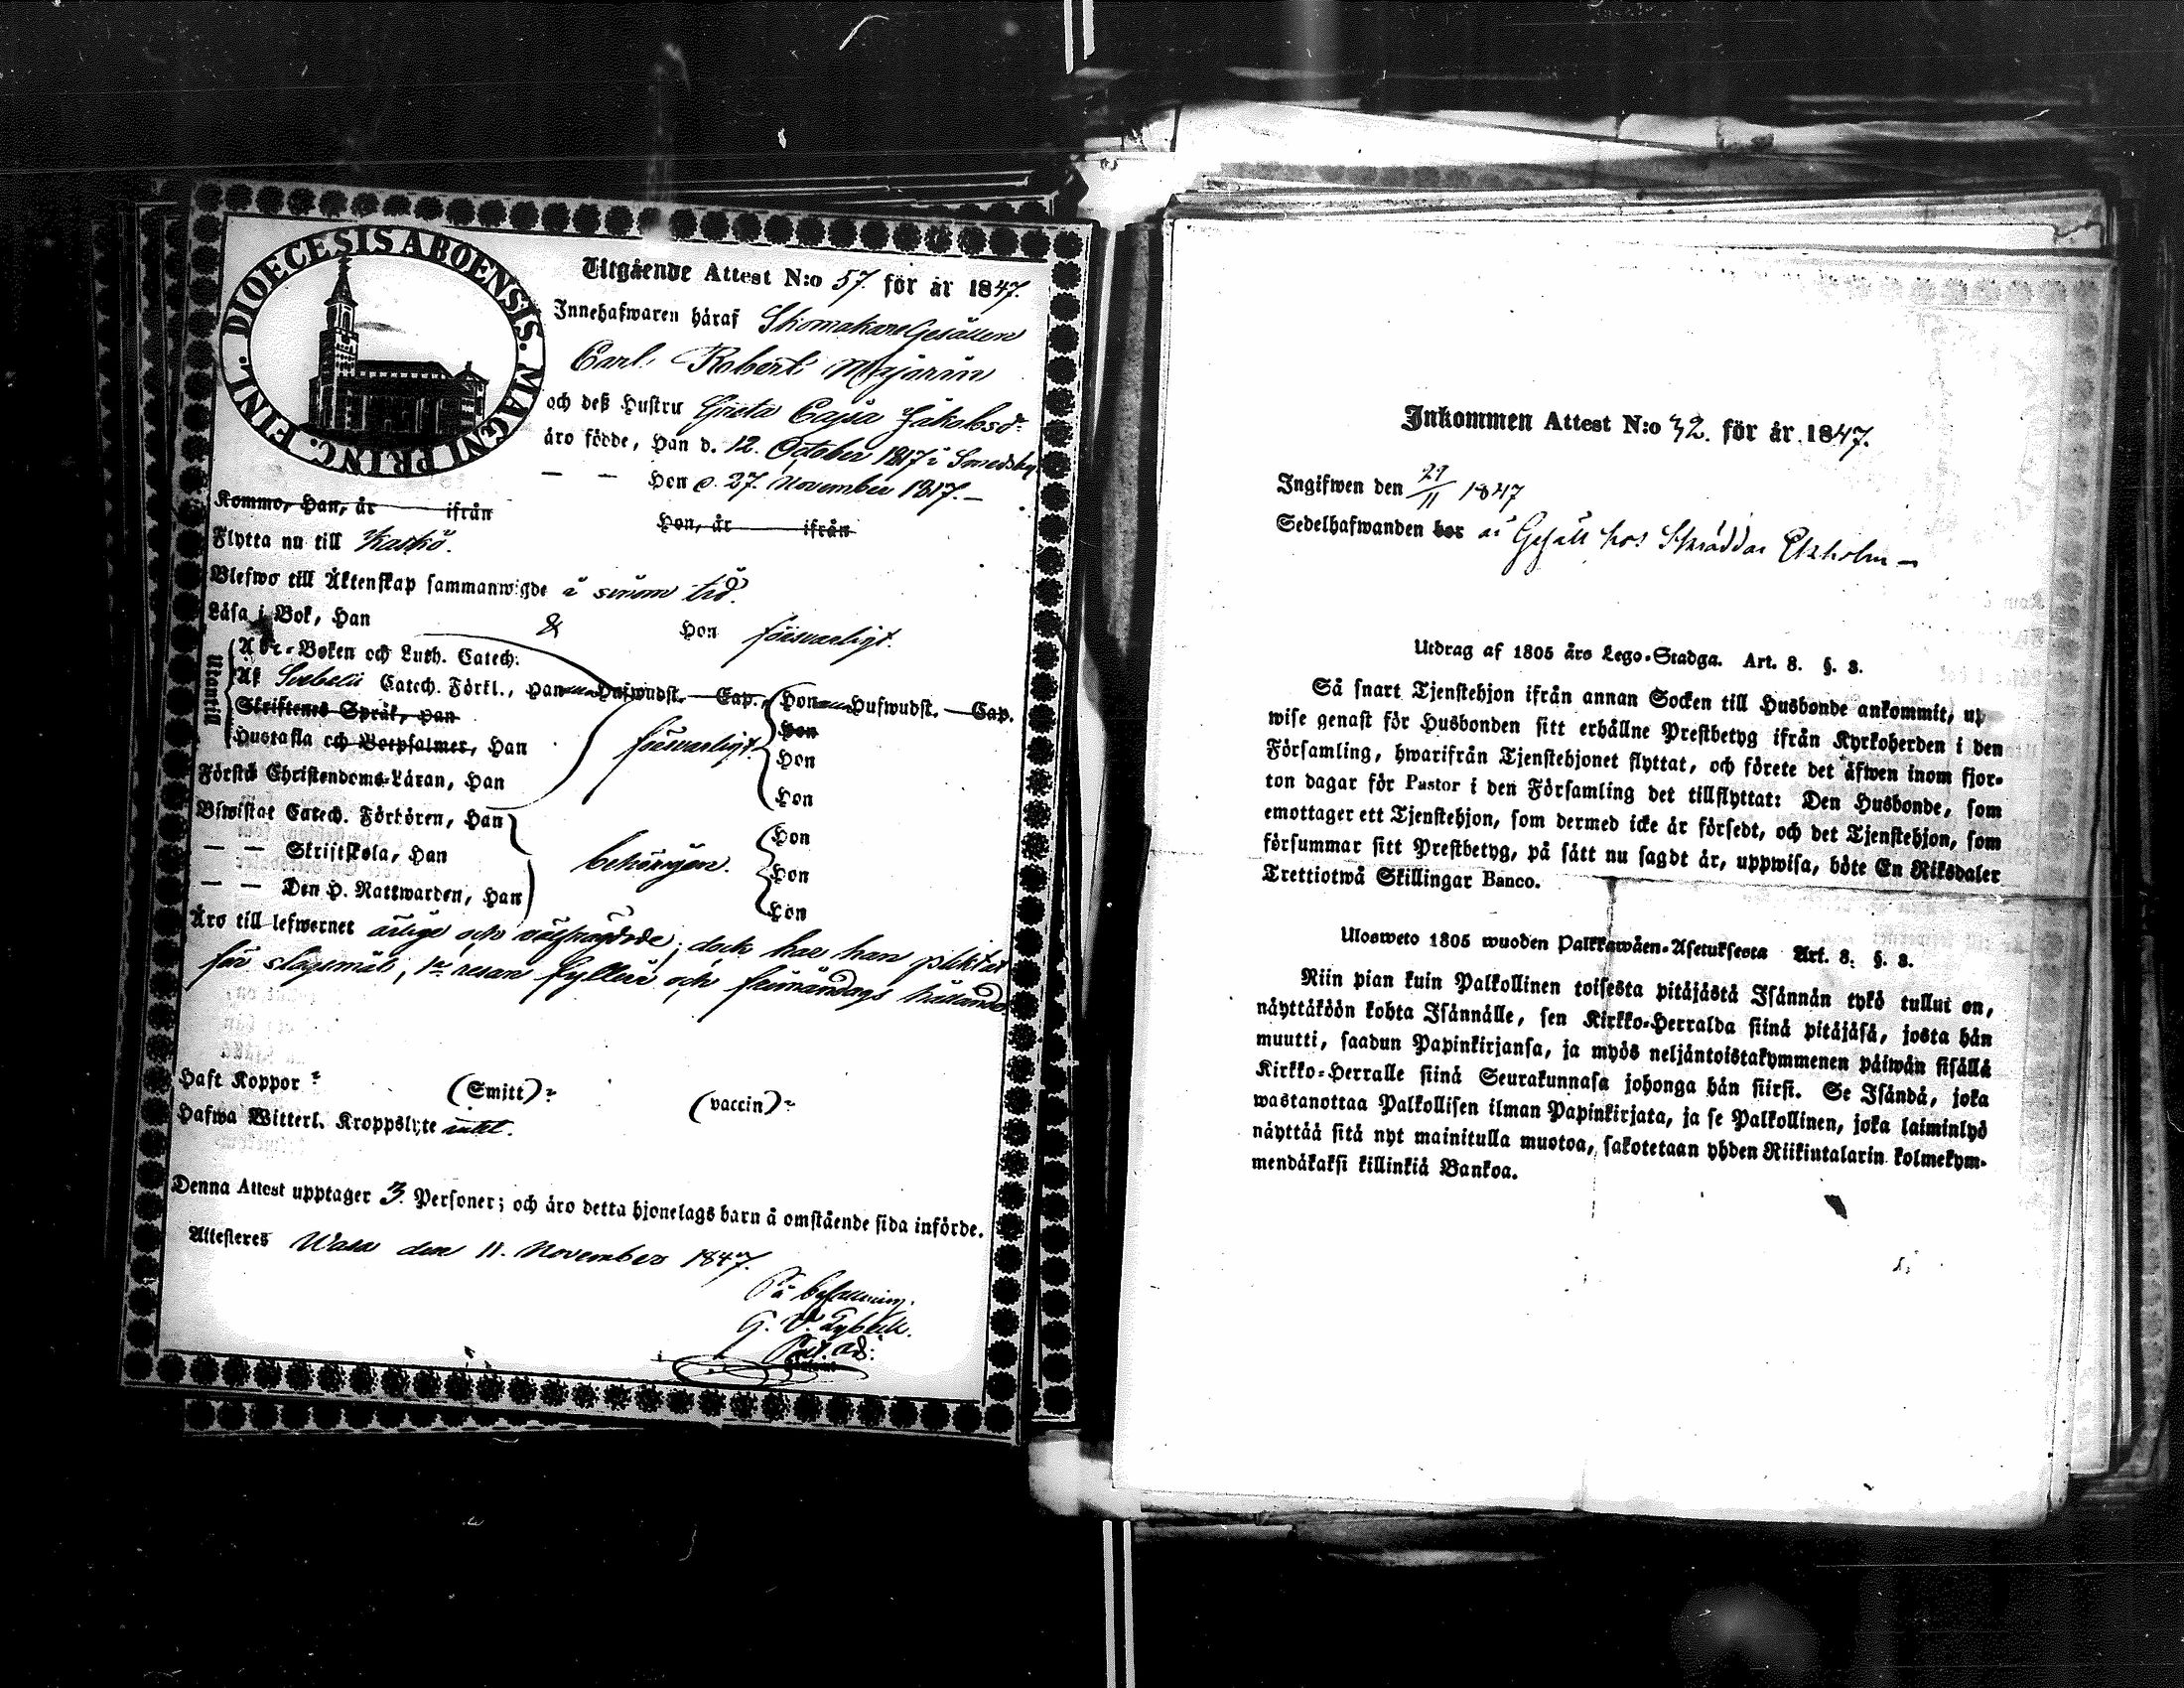 DIOECESIS ABOENSIS. MAGNI PRINC. FINL.
Utgående Attest N:o 57. för år 1847.
Innehafwaren häraf Skomakare Gesällen
Carl Robert
och deß Hustru Greta Cajsa Jakobsdr
äro födde, Han d. 12. October 1817 i Smedsby
— — Hon d. 27. November 1817.—
Kommo, Han, år ifrån Hon, år ifrån
Flytta nu till Kaskö.
Blefwo till Äktenskap sammanwigde i sinom tid.
Läsa i Bok, Han & Hon försvarligt.
Utantill
A b c-Boken och Luth. Catech:
Af Svebelii Catech. Förkl., Han Hufwudst. — Cap. Hon Hufwudst. — Cap.
Skriftenes Språk, Han Hon
Hustafla och Botpsalmer, Han försvarligt. Hon
Förstå Christendoms-Läran, Han Hon
Biwistat Catech. Förhören, Han Hon
— — Skriftskola, Han behörigen. Hon
— — Den H. Nattwarden, Han Hon
Äro till lefwernet ärlige och välfrägdade; dock har han pliktat
för slagsmål, 1a resan fylleri och frimåndags hållande
Haft Koppor (Smitt) (vaccin)
Hafwa Witterl. Kroppslyte intet.
Denna Attest upptager 3. Personer; och äro detta hjonelags barn å omstående sida införde.
Attesteres Wasa den 11. November 1847.
På befallning.
G. V.
Inkommen Attest N:o 32. för år 1847.
Ingifwen den 29/11 1847
Sedelhafwanden bor är Gesäll hos Skräddar Ekholm —
Utdrag af 1805 års Lego-Stadga. Art. 8. §. 3.
Så snart Tjenstehjon ifrån annan Socken till Husbonde ankommit, up
wise genast för Husbonden sitt erhållne Prestbetyg ifrån Kyrkoherden i den
Församling, hwarifrån Tjenstehjonet flyttat, och förete det äfwen inom fjor-
ton dagar för Pastor i den Församling det tillflyttat: Den Husbonde, som
emottager ett Tjenstehjon, som dermed icke är försedt, och det Tjenstehjon, som
försummar sitt Prestbetyg, på sätt nu sagdt är, uppwisa, böte En Riksdaler
Trettiotwå Skillingar Banco.
Ulosweto 1805 wuoden Palkkawäen-Asetuksesta Art. 8. §. 3.
Niin pian kuin Palkollinen toisesta pitäjästä Isännän tykö tullut on,
näyttäköön kohta Isännälle, sen Kirkko-Herralda siinä pitäjäsä, josta hän
muutti, saadun Papinkirjansa, ja myös neljäntoistakymmenen päiwän sisällä
Kirkko-Herralle siinä Seurakunnasa johonga hän siirsi. Se Isändä, joka
wastanottaa Palkollisen ilman Papinkirjata, ja se Palkollinen, joka laiminlyö
näyttää sitä nyt mainitulla muotoa, sakotetaan yhden Riikintalarin kolmekym-
mendäkaksi killinkiä Bankoa.